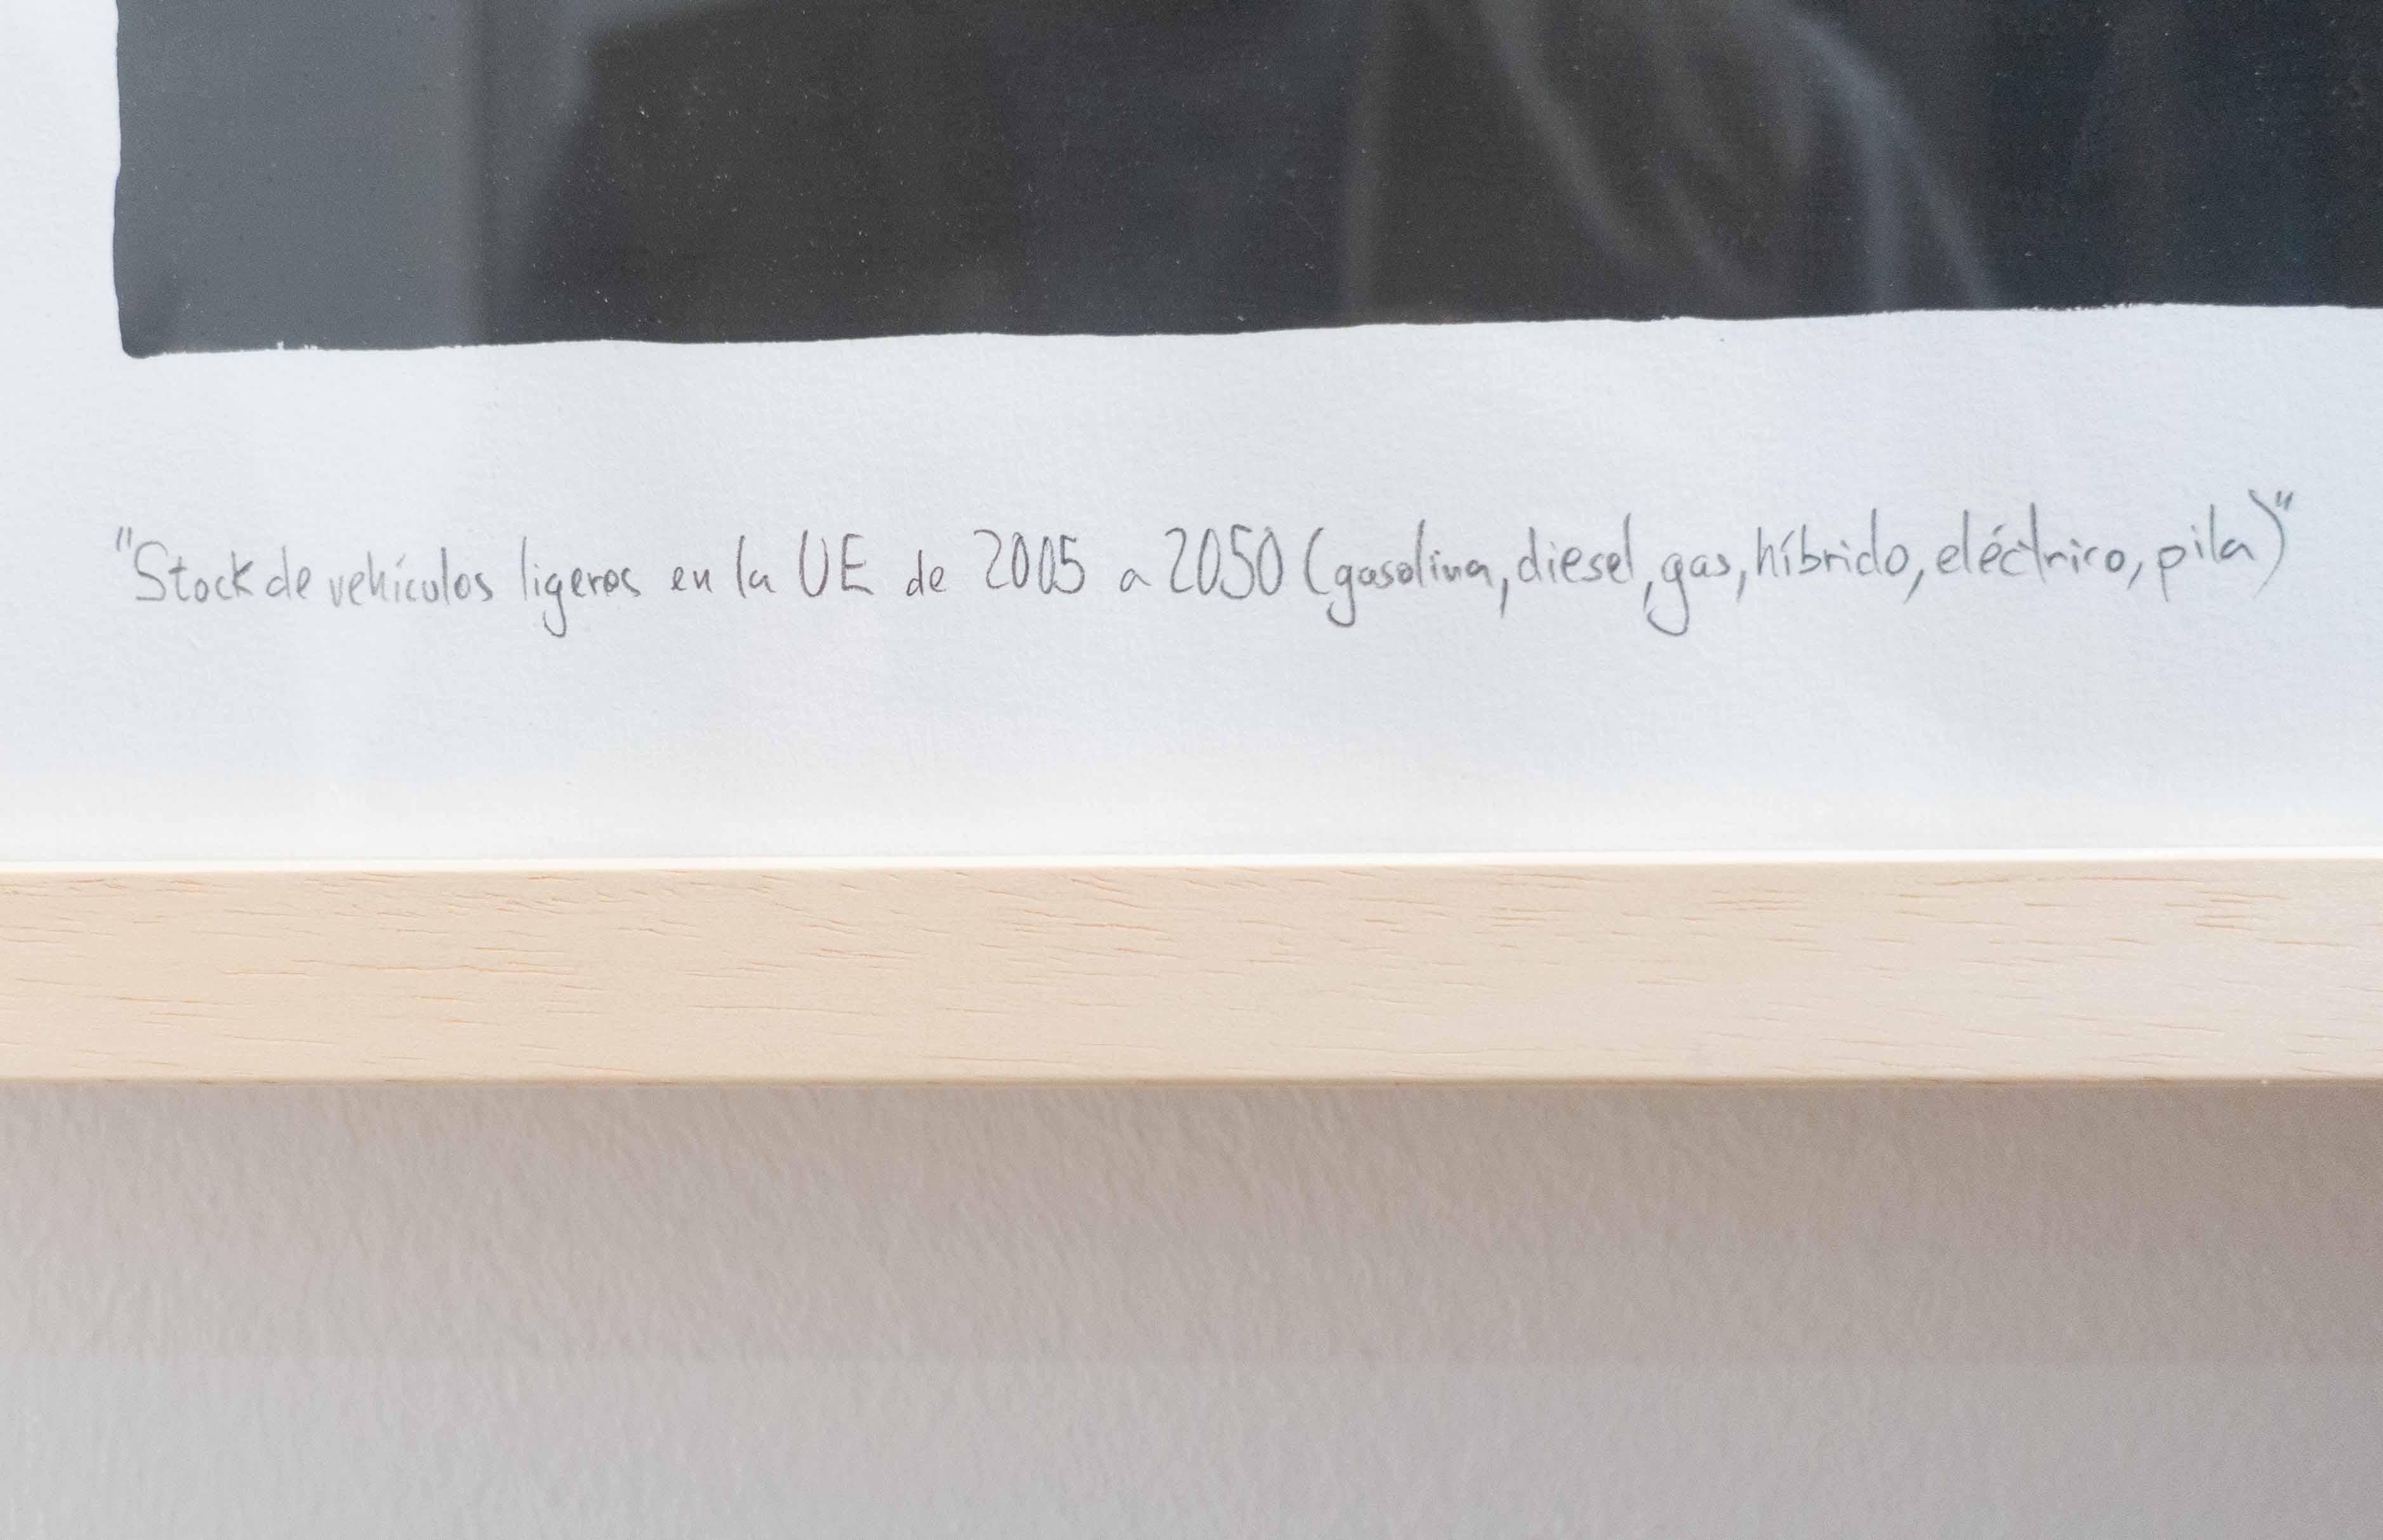 "Stock de vehículos ligeros en la UE de 2005 a 2050 (gasolina, diesel, gas, híbrido, eléctrico, pila)"